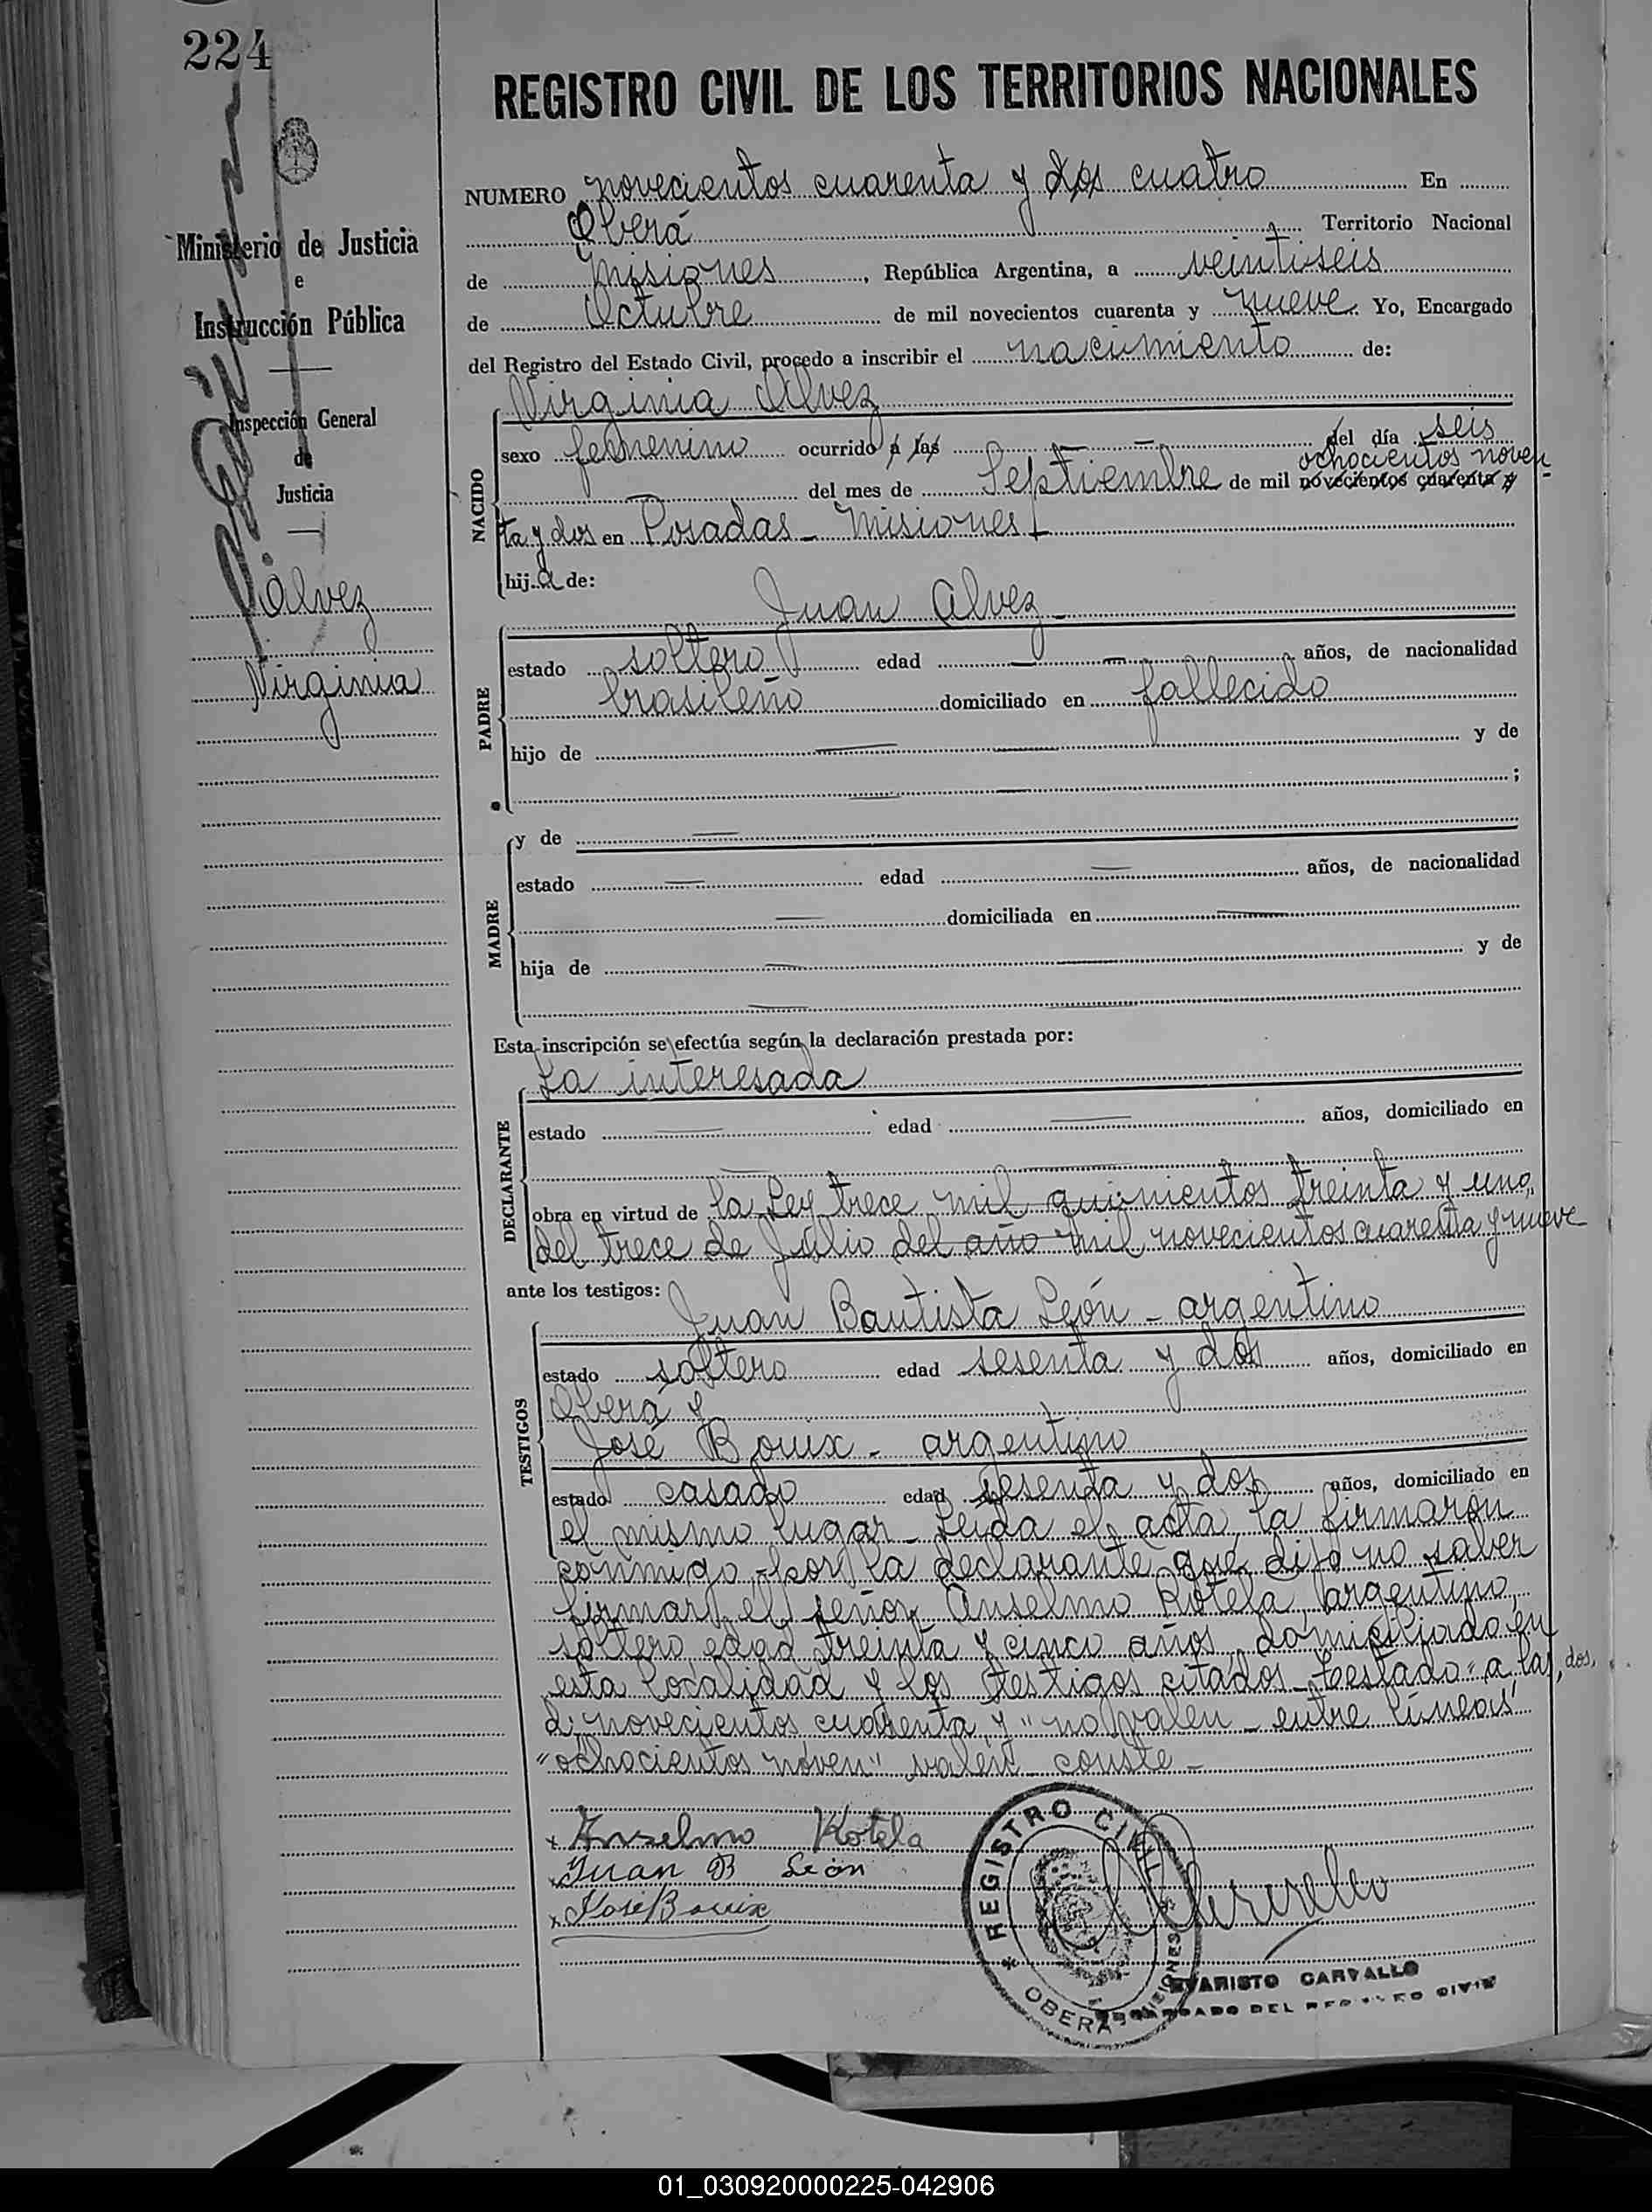 224
REGISTRO CIVIL DE LOS TERRITORIOS NACIONALES
Ministerio de Justicia
e
Instrucción Pública
Inspección General
de
Justicia
Alvez
Virginia
NUMERO novecientos cuarenta y dos cuatro En
Oberá Territorio Nacional
de Misiones, República Argentina, a veintiseis
de Octubre de mil novecientos cuarenta y nueve. Yo, Encargado
del Registro del Estado Civil, procedo a inscribir el nacimiento de:
Virginia Alvez
NACIDO
sexo femenino ocurrido a las — del día seis
ochocientos noven
— del mes de Septiembre de mil novecientos cuarenta y
ta y dos en Posadas - Misiones -
hij a de:
Juan Alvez
PADRE
estado soltero edad — años, de nacionalidad
brasileño domiciliado en fallecido
hijo de — — y de
— — ;
MADRE
y de —
estado — edad — años, de nacionalidad
— domiciliada en —
hija de — — y de
— —
Esta inscripción se efectúa según la declaración prestada por:
La interesada
DECLARANTE
estado — edad — años, domiciliado en
— —
obra en virtud de la Ley trece mil quinientos treinta y uno,
del trece de Julio del año mil novecientos cuarenta y nueve
ante los testigos:
Juan Bautista León - argentino
TESTIGOS
estado soltero edad sesenta y dos años, domiciliado en
Oberá y
José Bouix - argentino
estado casado edad sesenta y dos años, domiciliado en
el mismo lugar - Leída el acta, la firmaron
conmigo, por la declarante que dijo no saber
firmar, el señor Anselmo Rotela, argentino,
soltero, edad treinta y cinco años, domiciliado en
esta localidad y los testigos citados - testado: "a las, dos,
d; novecientos cuarenta y" no valen - entre líneas
"ochocientos noven" valen conste -
x Anselmo Rotela
x Juan B León
x José Bouix
REGISTRO CIVIL
OBERA MISIONES
EVARISTO CARVALLO
ENCARGADO DEL REGISTRO CIVIL
01_030920000225-042906